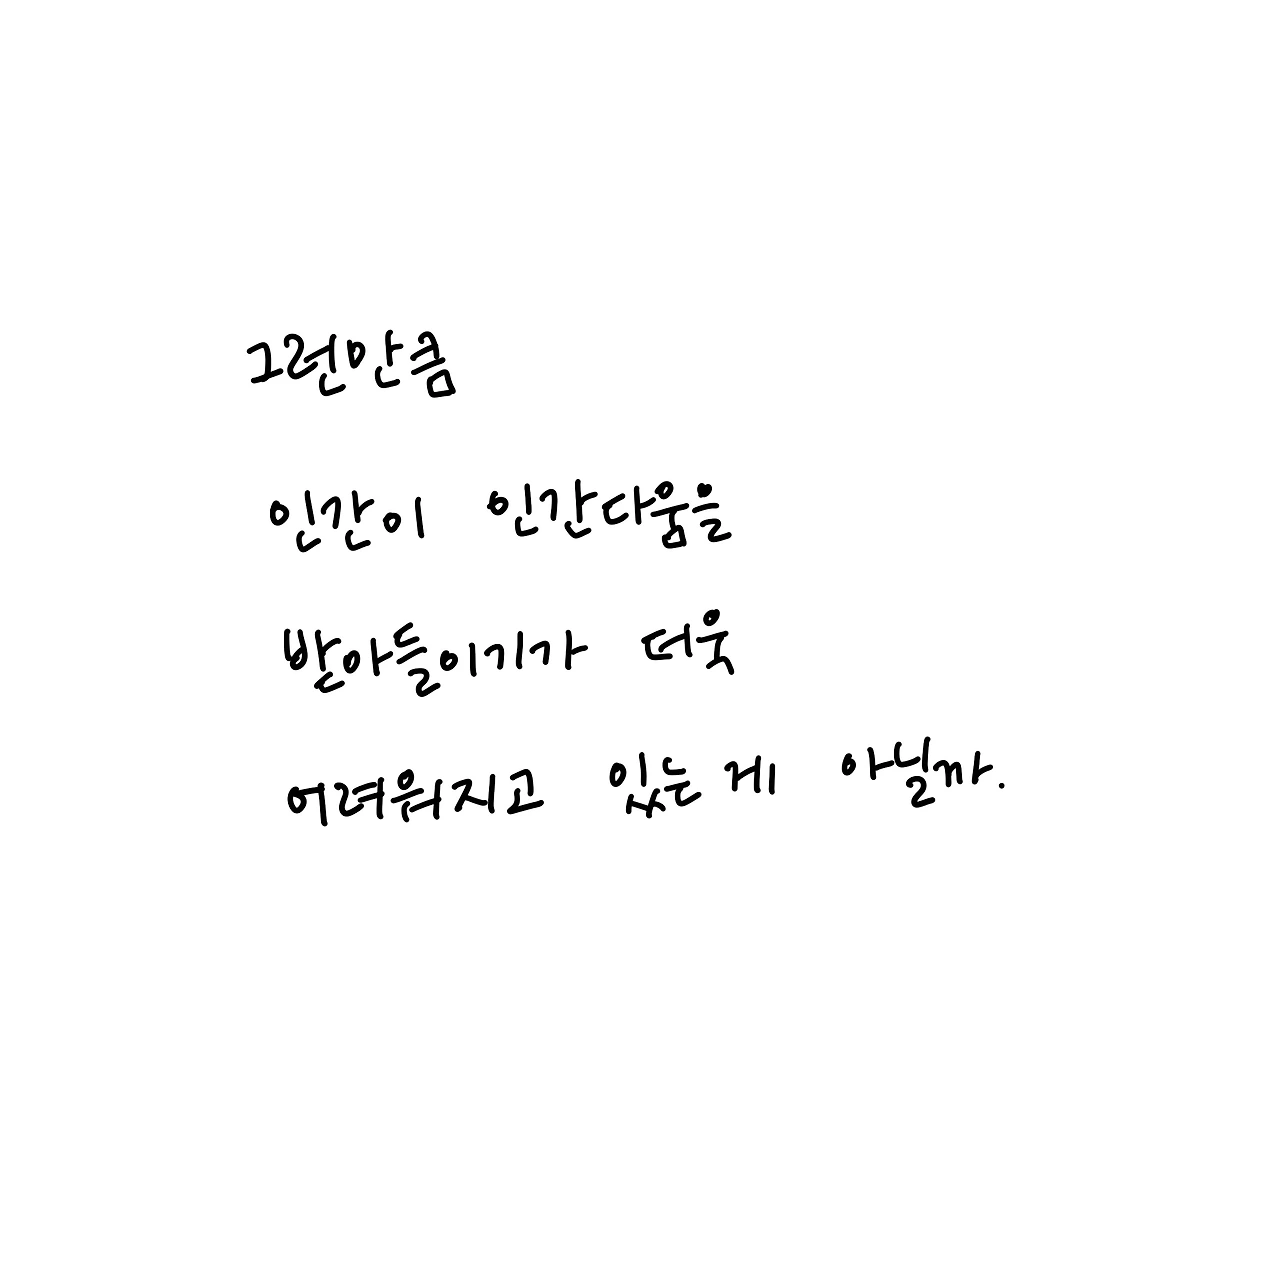 그런만큼
인간이 인간다움을
받아들이기가 더욱
어려워지고 있는 게 아닐까.